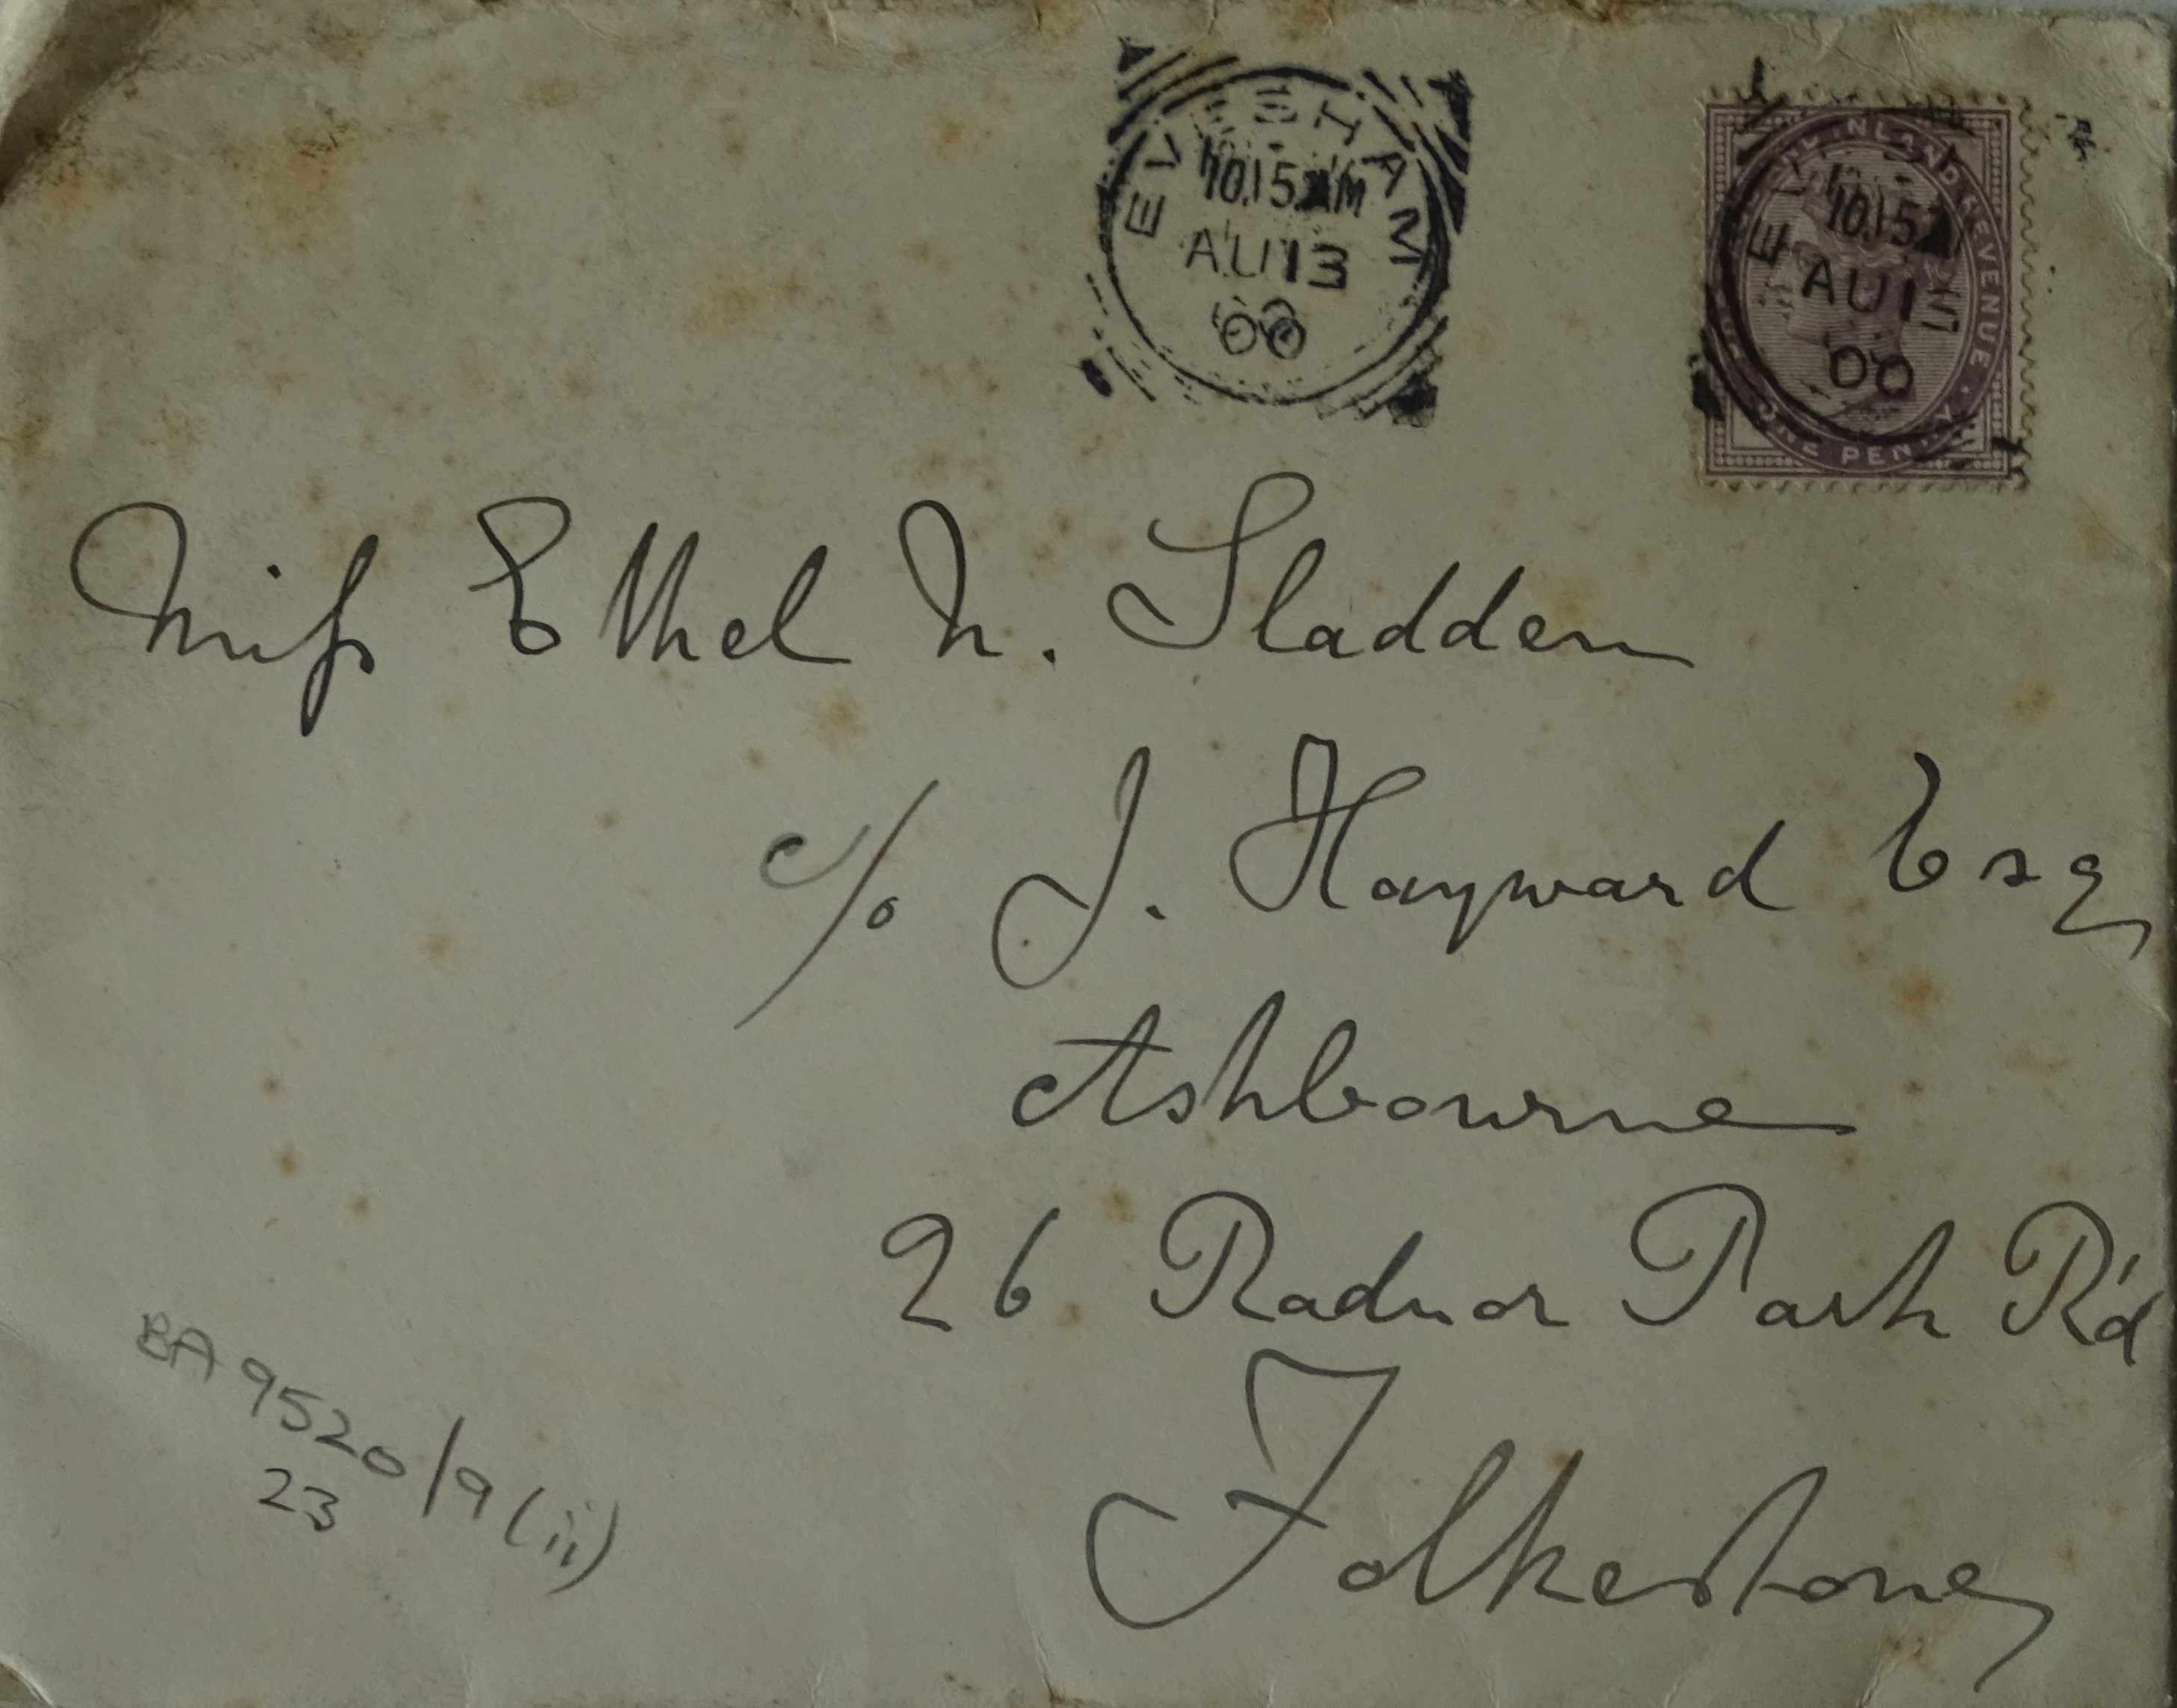 EVESHAM
10.15 AM
AU 13
00
INLAND REVENUE
10.15
AU 1
00
ONE PENNY
Miss Ethel M. Sladden
c/o J. Hayward Esq
Ashbourne
26 Radnor Park Rd
Folkestone
BA 9520/9 (ii)
23